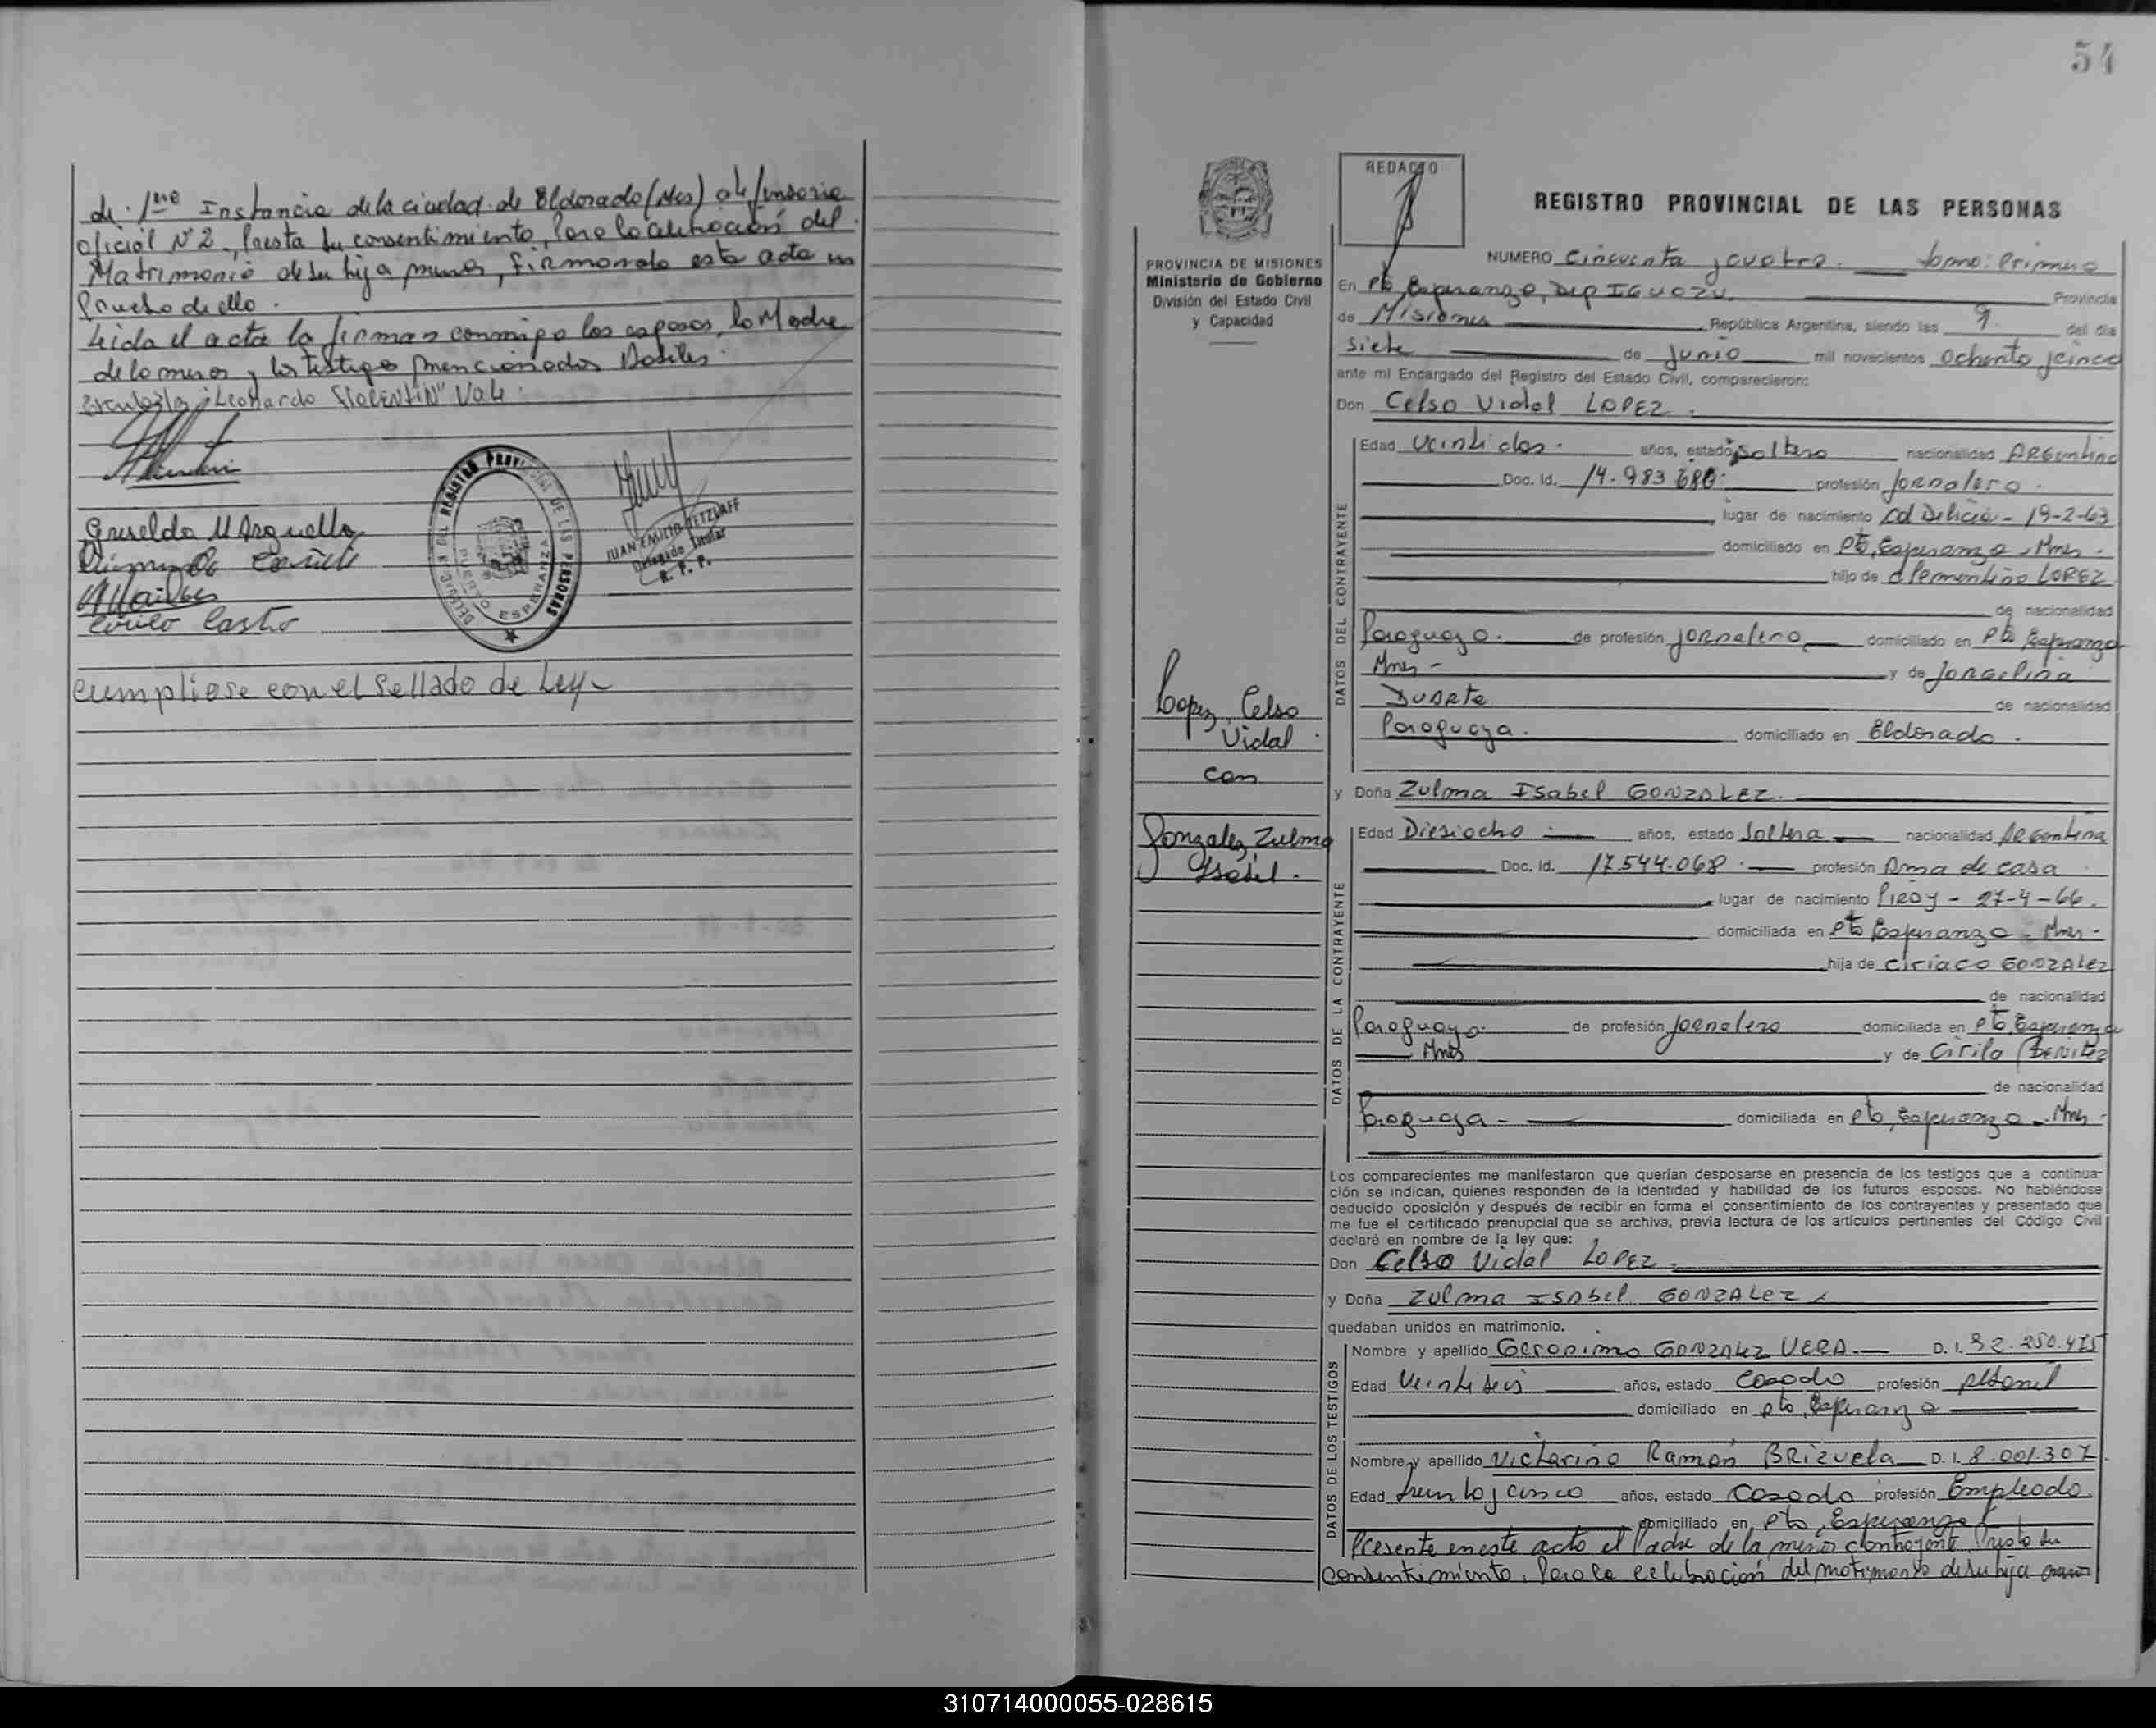 de 1ra Instancia de la ciudad de Eldorado (Mes) defensoria
oficial Nº 2, Presta su consentimiento, Para la celebración del
Matrimonio de su hija menor, firmando esta acta en
Prueba de ello.
Leida el acta la firman conmigo los esposos, la Madre
de la menor y los testigos mencionados
Leonardo "FLORENTIN" Vale.
Griselda M Arguello
Cirilo Castro
DELEGACION DEL REGISTRO PROVINCIAL DE LAS PERSONAS
PUERTO ESPERANZA
JUAN EMILIO RETZLAFF
Delegado Titular
R. P. P.
Cumpliose con el Sellado de Ley-
54
PROVINCIA DE MISIONES
Ministerio de Gobierno
División del Estado Civil
y Capacidad
Lopez, Celso
Vidal
con
Gonzalez, Zulma
Ysabel.
REDACTO
REGISTRO PROVINCIAL DE LAS PERSONAS
NUMERO Cincuenta y cuatro. Tomo: Primero
En Pto Esperanza, Dep IGUAZU. Provincia
de Misiones República Argentina, siendo las 9 del día
Siete de Junio mil novecientos Ochenta y cinco
ante mi Encargado del Registro del Estado Civil, comparecieron:
Don Celso Vidal LOPEZ.
DATOS DEL CONTRAYENTE
Edad Veintidos. años, estado Soltero nacionalidad Argentino
Doc. Id. 14.983.680. profesión Jornalero.
lugar de nacimiento Col Delicia - 19-2-63
domiciliado en Pto, Esperanza - Mnes.
hijo de Clementino LOPEZ
de nacionalidad
Paraguayo. de profesión Jornalero domiciliado en Pto Esperanza
Mnes - y de Jorgelina
DUARTE de nacionalidad
Paraguaya. domiciliado en Eldorado.
y Doña Zulma Isabel GONZALEZ.
DATOS DE LA CONTRAYENTE
Edad Diesiocho años, estado Soltera nacionalidad Argentina
Doc. Id. 17.544.068. profesión Ama de casa
lugar de nacimiento PIRAY - 27-4-66.
domiciliada en Pto Esperanza - Mnes -
hija de Ciriaco GONZALEZ
de nacionalidad
Paraguayo. de profesión Jornalero domiciliada en Pto, Esperanza
Mnes y de Cirila BENITEZ
de nacionalidad
Paraguaya - domiciliada en Pto, Esperanza - Mnes -
Los comparecientes me manifestaron que querían desposarse en presencia de los testigos que a continua-
ción se indican, quienes responden de la identidad y habilidad de los futuros esposos. No habiéndose
deducido oposición y después de recibir en forma el consentimiento de los contrayentes y presentado que
me fue el certificado prenupcial que se archiva, previa lectura de los artículos pertinentes del Código Civil
declaré en nombre de la ley que:
Don Celso Vidal LOPEZ.
y Doña Zulma ISABEL GONZALEZ
quedaban unidos en matrimonio.
DATOS DE LOS TESTIGOS
Nombre y apellido Geronimo GONZALEZ VERA. D. I. 92.250.475
Edad Veintiseis años, estado Casado profesión
domiciliado en Pto, Esperanza
Nombre y apellido Victorino Ramón BRIZUELA D. I. 8.001.307.
Edad treinta y cinco años, estado Casado profesión Empleado.
domiciliado en Pto, Esperanza
Presente en este acto el Padre de la menor contrayente, Presto su
consentimiento, Para la celebración del matrimonio de su hija menor
310714000055-028615